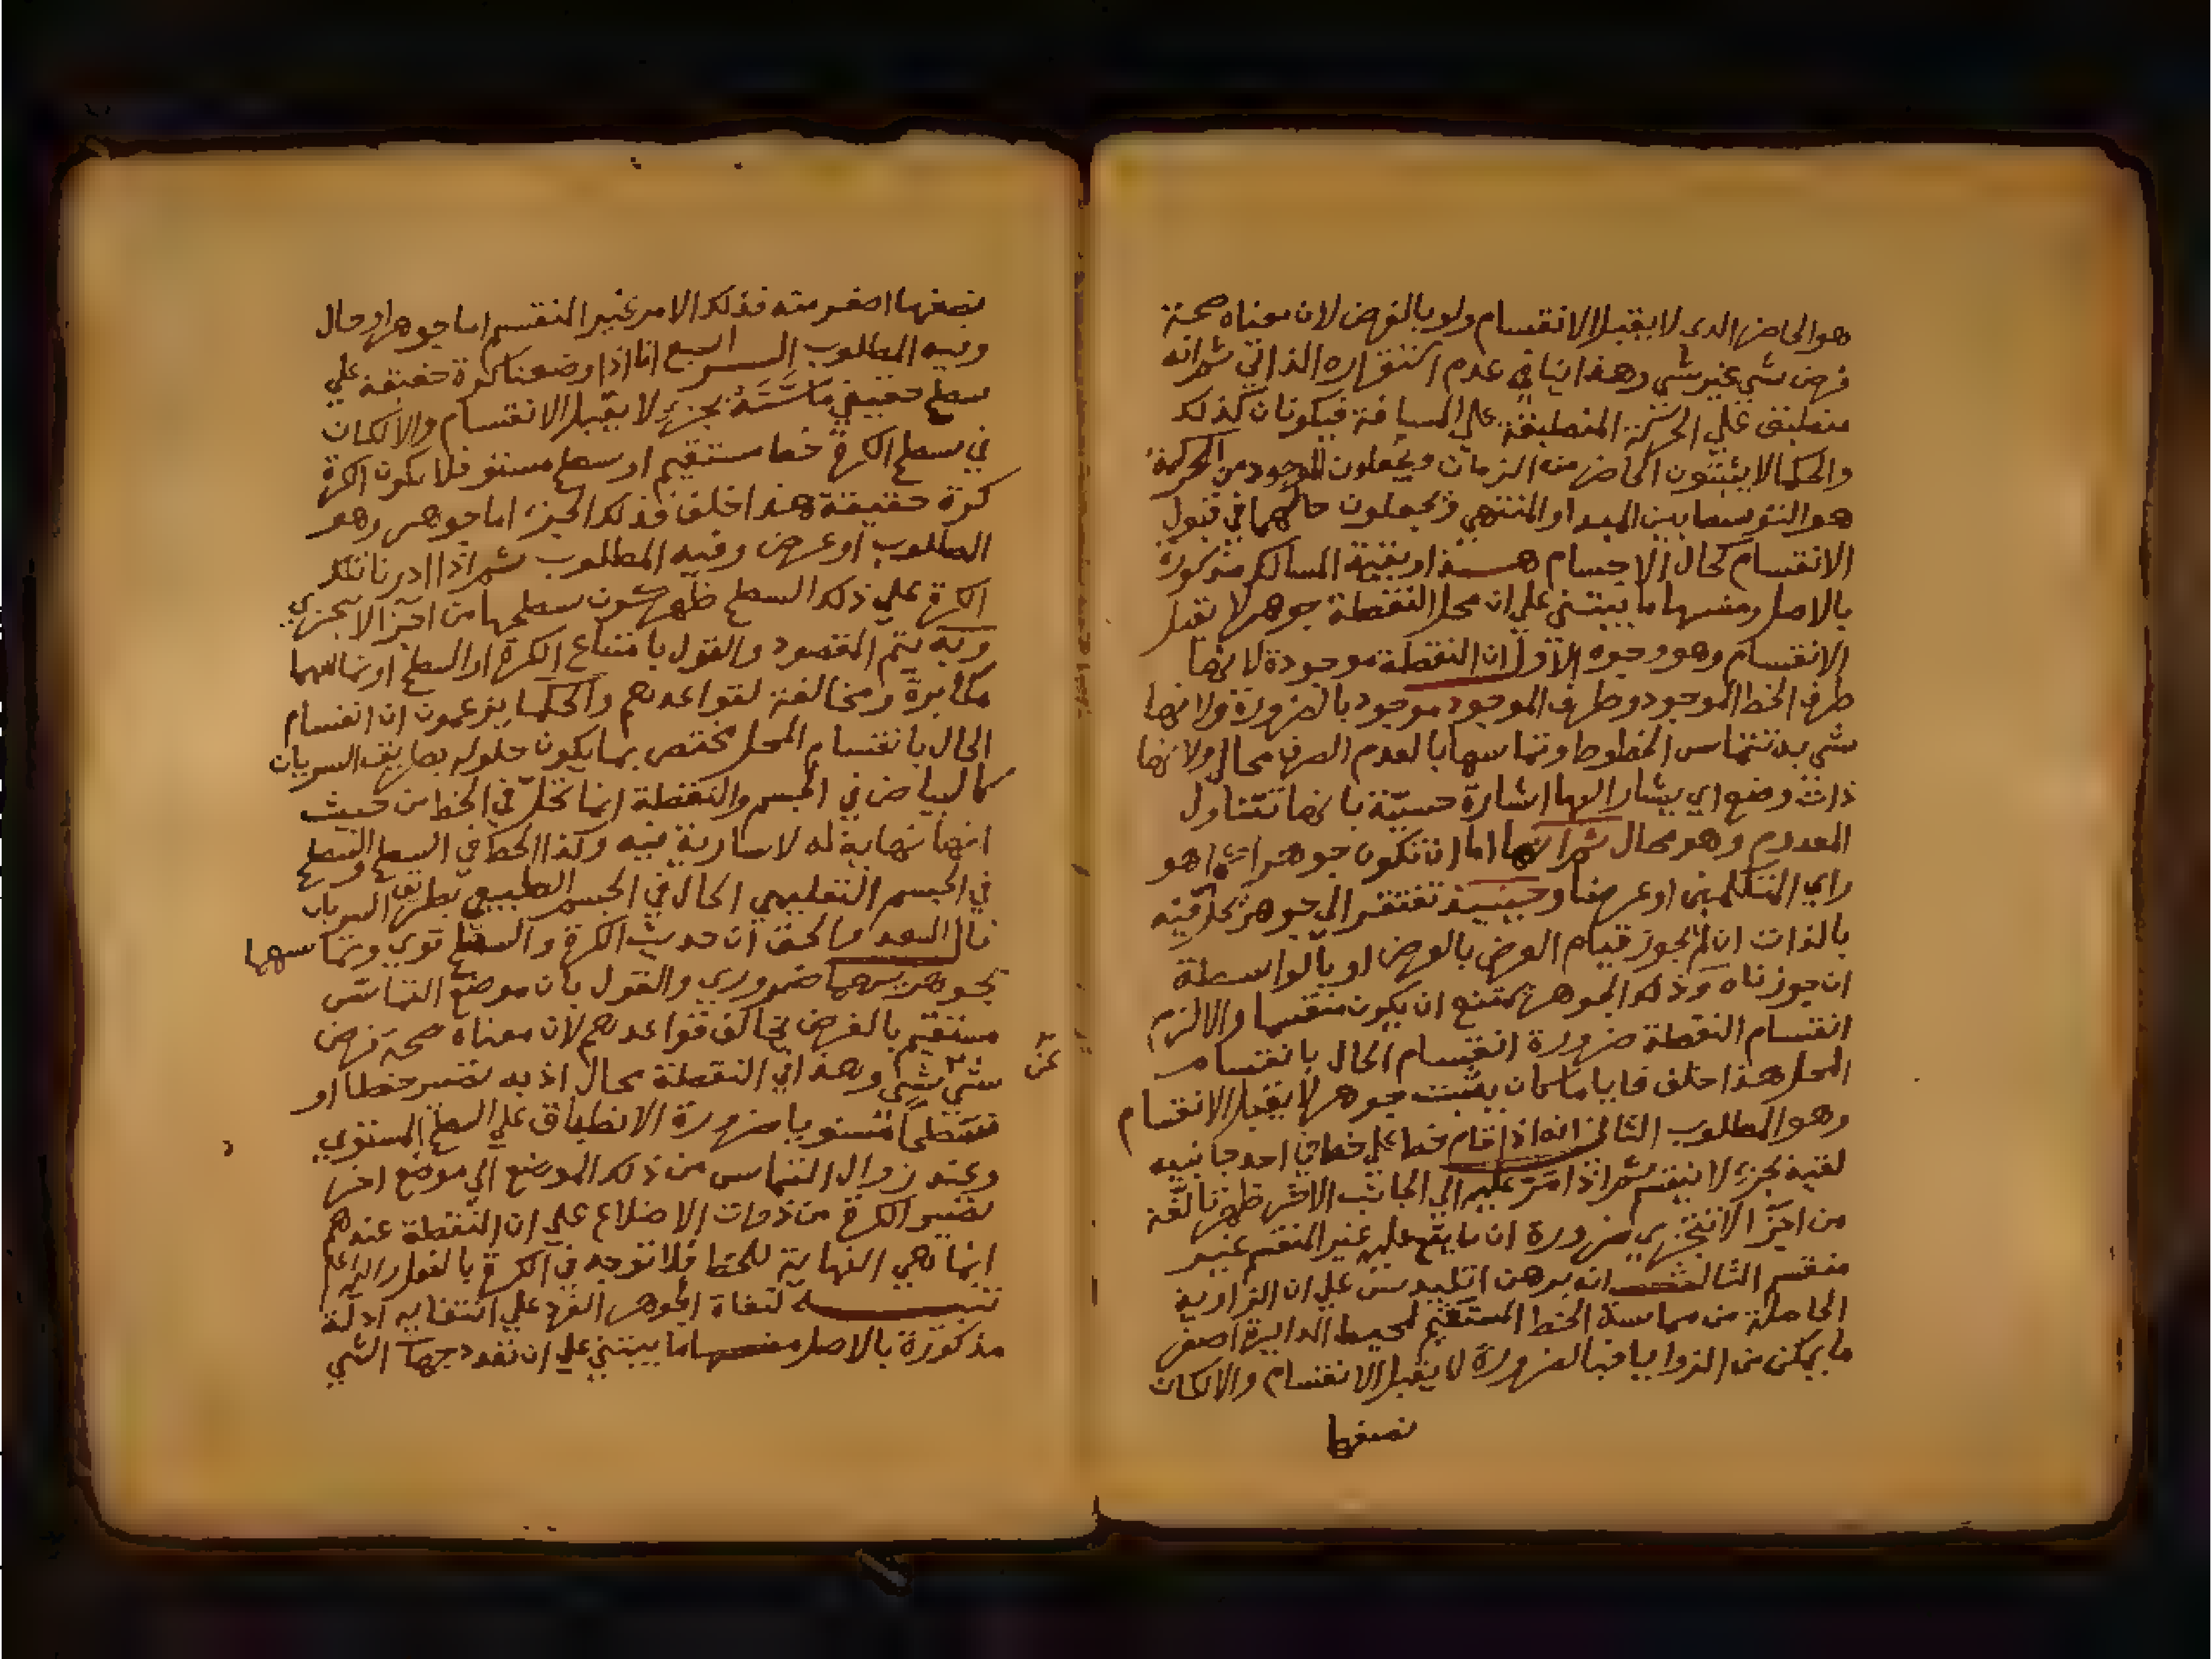 هو الحاضر الذي لا يقبل الانقسام ولو بالفرض لان معناه صحة
فرض شي غير شي وهذا ينافي عدم استقراره الذاتي ثم انه
منطبق علي الحركة المنطبقة علي المسافة فيكونان كذلك
والحكما لا يثبتون الحاضر من الزمان ويجعلون الموجود من الحركة
هو التوسط بين المبدا والمنتهي ويجعلون حالهما في قبول
الانقسام كحال الاجسام هذا وبقية المسالك مذكورة
بالاصل ومنها ما يبتني علي ان محل النقطة جوهر لا يقبل
الانقسام وهو وجوه الاول ان النقطة موجودة لانها
طرف الخط الموجود وطرف الموجود موجود بالضرورة ولانها
شي به تتماس الخطوط وتماسها بالعدم الصرف محال ولانها
ذات وضع اي يشار اليها اشارة حسية بانها تتناول
المعدوم وهو محال ثم انها اما ان تكون جوهرا كما هو
راي المتكلمين او عرضا وحينيذ تفتقر الي جوهر تحل فيه
بالذات ان لم نجوز قيام العرض بالعرض او بالواسطة
ان جوزناه وذلك الجوهر يمتنع ان يكون منقسما والا لزم
انقسام النقطة ضرورة انقسام الحال بانقسام
المحل هذا خلف فايا ما كان يثبت جوهر لا يقبل الانقسام
وهو المطلوب الثاني انه اذا قام خط علي خط في احد جانبيه
لقيه بجزء لا ينقسم ثم اذا مر عليه الي الجانب الاخر ظهر تالفه
من اجزا لا تتجزي ضرورة ان ما يقع عليه غير المنقسم غير
منقسم الثالث انه برهن اقليدس علي ان الزاوية
الحاصلة من مماسة الخط المستقيم لمحيط الدايرة اصغر
ما يمكن من الزوايا فبالضرورة لا يقبل الانقسام والا لكان
نصفها
نصفها اصغر منه فذلك الامر غير المنقسم اما جوهر او حال
وفيه المطلوب الرابع انا اذا وضعنا كرة حقيقة علي
سطح حقيقي ماسته بجزء لا يقبل الانقسام والا لكان
في سطح الكرة خط مستقيم او سطح مستو فلا يكون الكرة
كرة حقيقة هذا خلف فذلك الجزء اما جوهر وهو
المطلوب او عرض وفيه المطلوب ثم اذا ادرنا تلك
الكرة علي ذلك السطح ظهر كون سطحها من اجزا لا تتجزي
وبه يتم المقصود والقول بامتناع الكرة او السطح او تماسهما
مكابرة ومخالفة لقواعدهم والحكما يزعمون ان انقسام
الحال بانقسام المحل مختص بما يكون حلوله بطريق السريان
كالبياض في الجسم والنقطة انما تحل في الخط من حيث
انها نهاية له لا سارية فيه وكذا الخط في السطح والسطح
في الجسم التعليمي الحال في الجسم الطبيعي بطريق السريان
قال السعد والحق ان حديث الكرة والسطح قوي وتماسهما
بجوهريهما ضروري والقول بان موضع التماس
مستقيم بالفرض يخالف قواعدهم لان معناه صحة فرض
شي شي وهذا في النقطة محال اذ به تصير خطا او
سطحا مستويا ضرورة الانطباق علي السطح المستوي
وعند زوال التماس من ذلك الموضع الي موضع اخر
تصير الكرة من ذوات الاضلاع علي ان النقطة عندهم
انما هي النهاية للخط فلا توجد في الكرة بالفعل والله اعلم
تنبيه لنفاة الجوهر الفرد علي انتفايه ادلة
مذكورة بالاصل منها ما يبتني علي ان تعدد جهات الشي